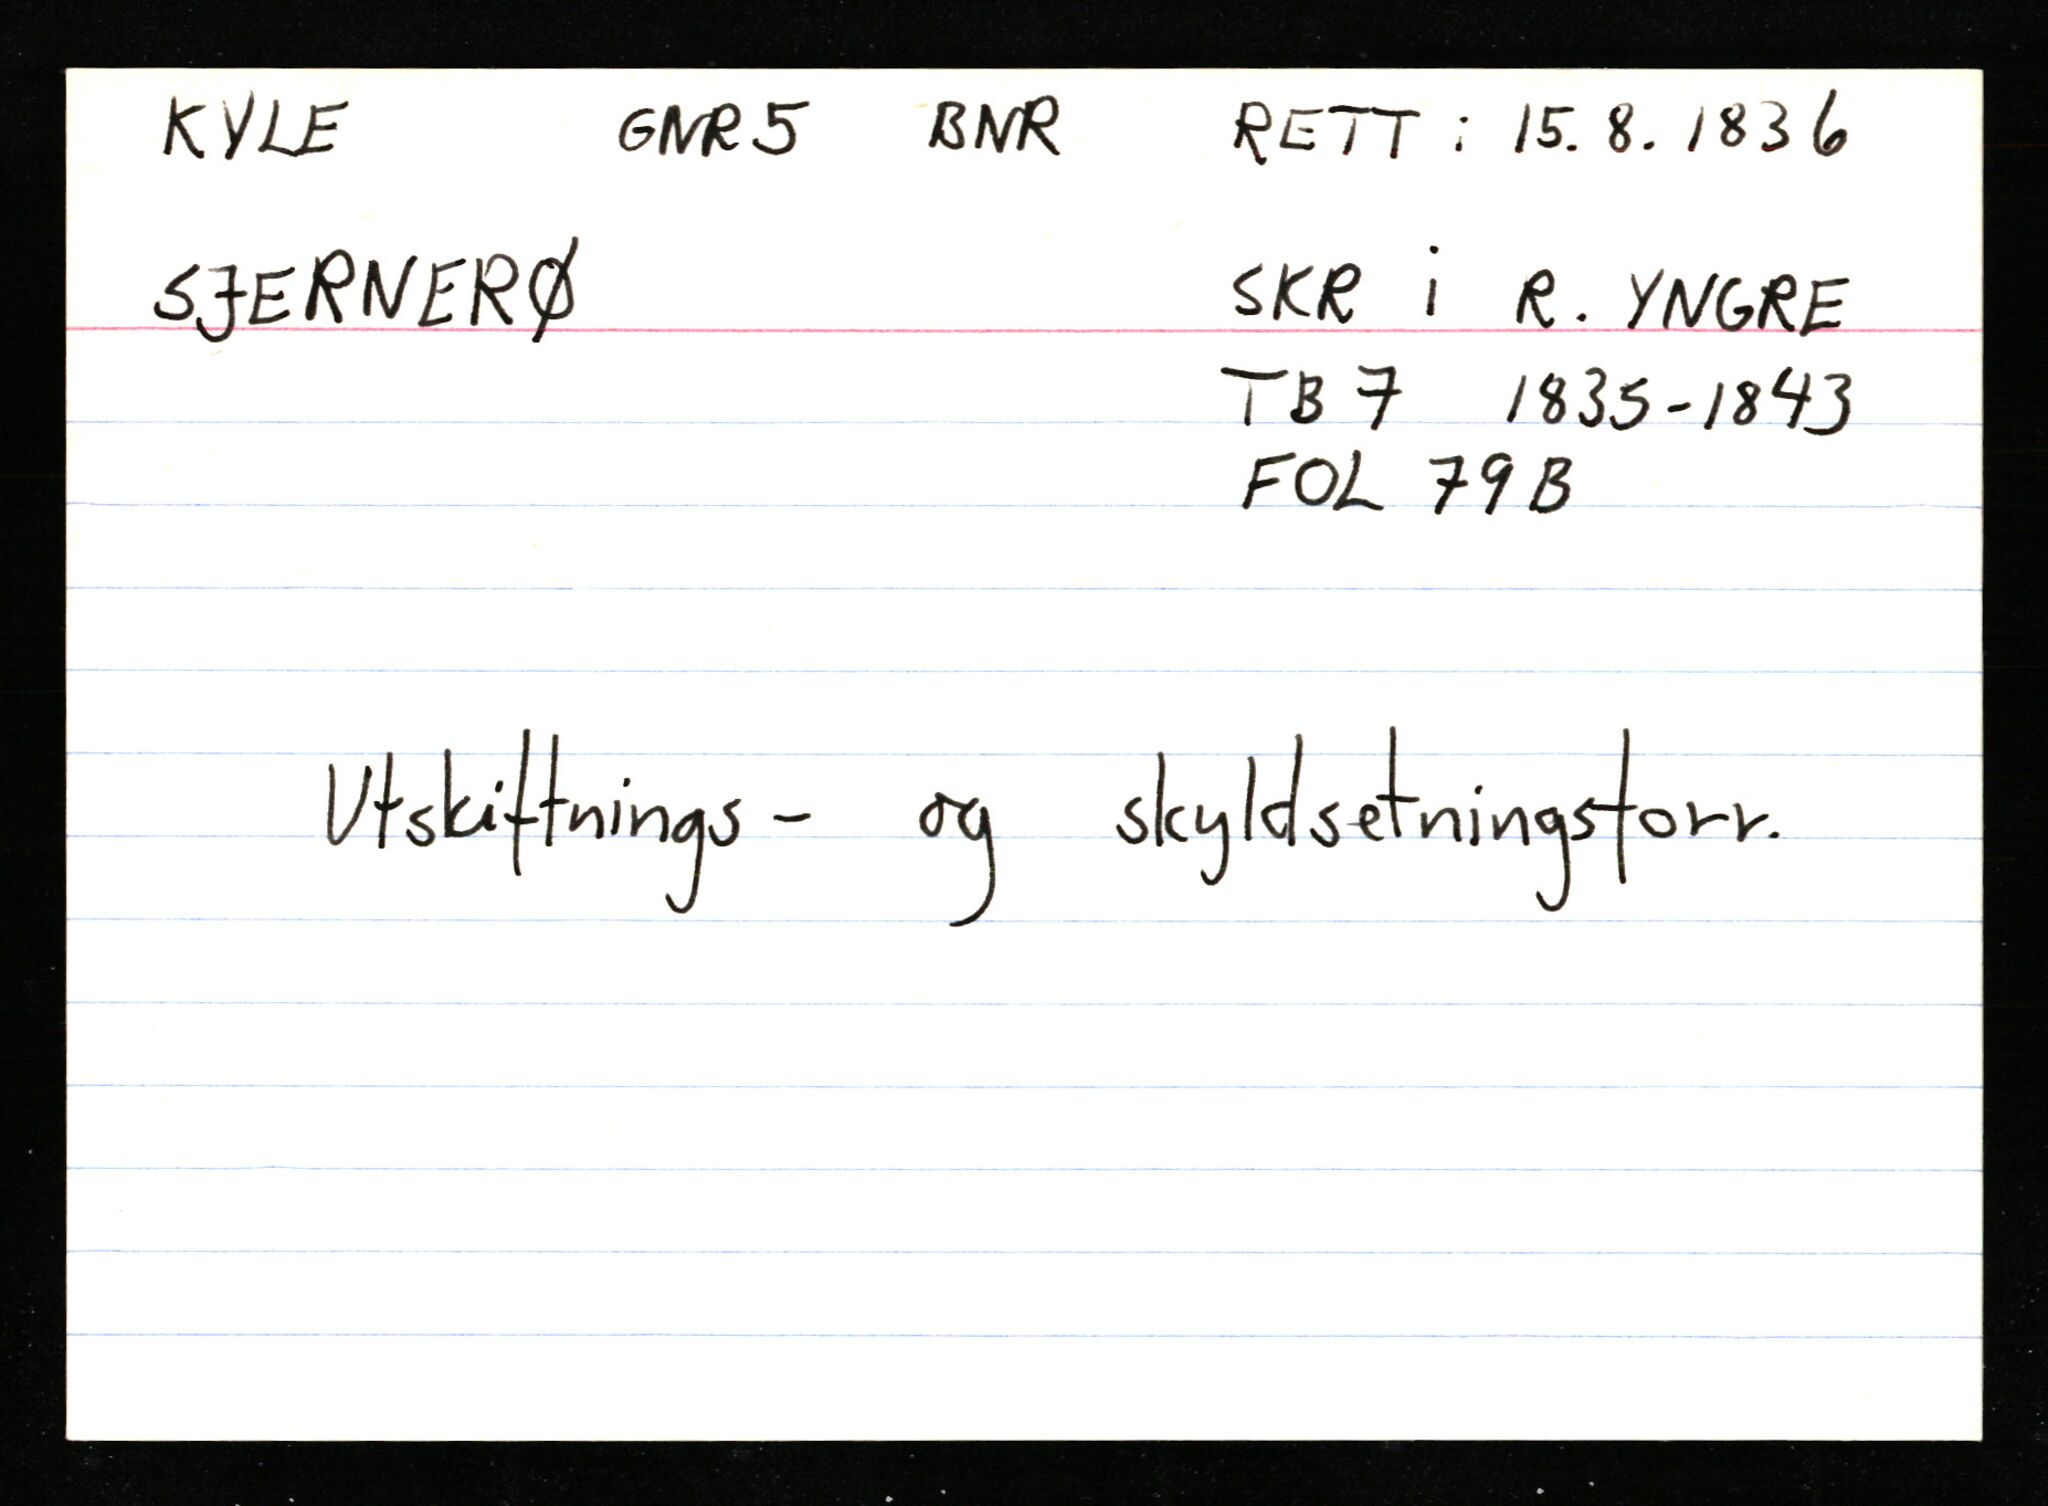 KYLE GNR 5 BNR RETT: 15.8.1836
SJERNERØ SKR i R. YNGRE
TB 7 1835-1843
FOL 79B
Utskiftnings- og skyldsetningsforr.